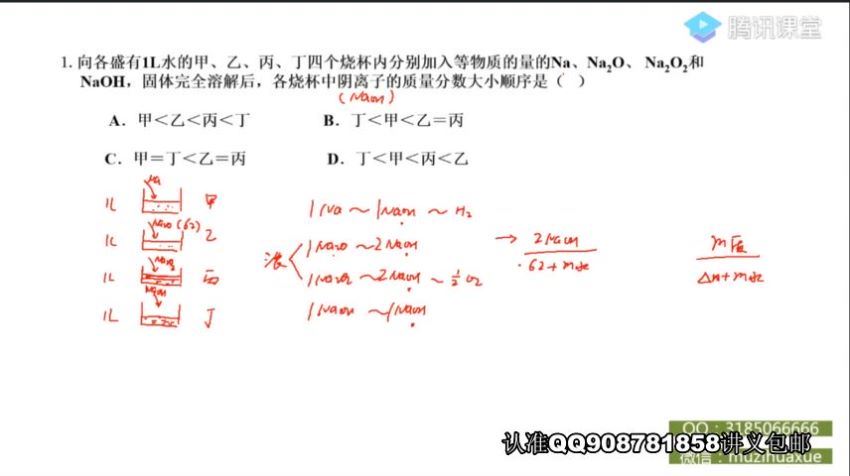 腾讯课堂
1. 向各盛有1L水的甲、乙、丙、丁四个烧杯内分别加入等物质的量的Na、Na₂O、 Na₂O₂和
NaOH，固体完全溶解后，各烧杯中阴离子的质量分数大小顺序是（ ）
(NaOH)
A. 甲＜乙＜丙＜丁 B. 丁＜甲＜乙＝丙
C. 甲＝丁＜乙＝丙 D. 丁＜甲＜丙＜乙
1L Na 甲 1Na～1NaOH～H₂
1L Na₂O (62) 乙 1Na₂O～2NaOH → 2NaOH
62+m水
m质
Δm+m水
浓
1L Na₂O₂ 丙 1Na₂O₂～2NaOH～½O₂
1L NaOH 丁 1NaOH～1NaOH
QQ：3185066666
认准QQ908781858讲义包邮
微信：muzihuaxue